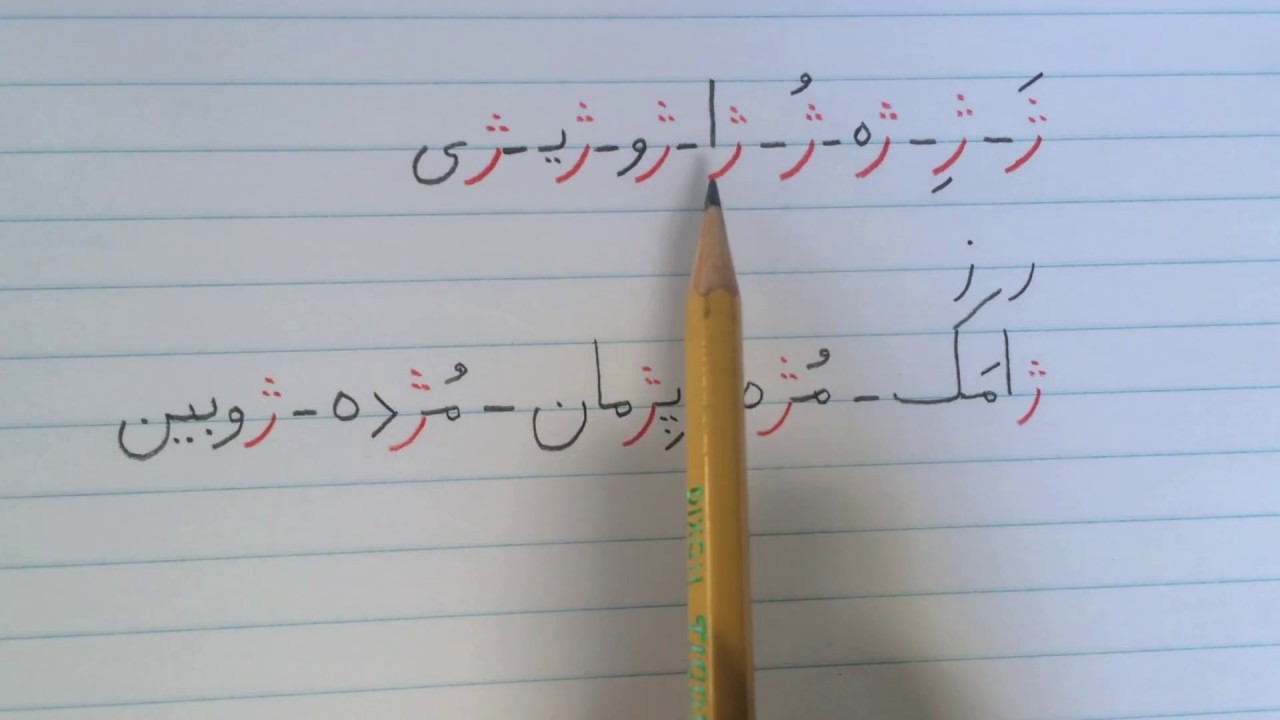 ژَ - ژِ - ژه - ژُ - ژا - ژو - ژیـ - ژی
ر ز
ژامَک - مُژه پژمان - مُژده - ژوبین
DIXON